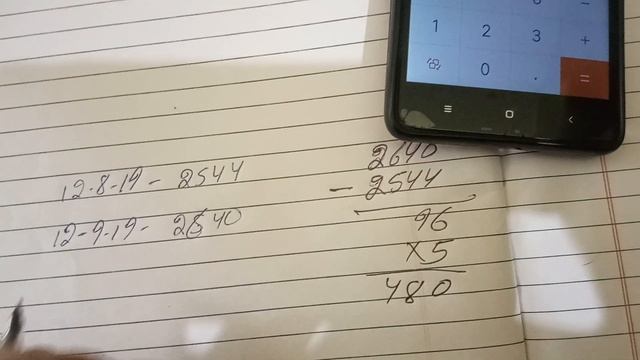 12-8-19 - 2544
12-9-19- 2640
2640
- 2544
96
x5
480
1 2 3 +
0 . =